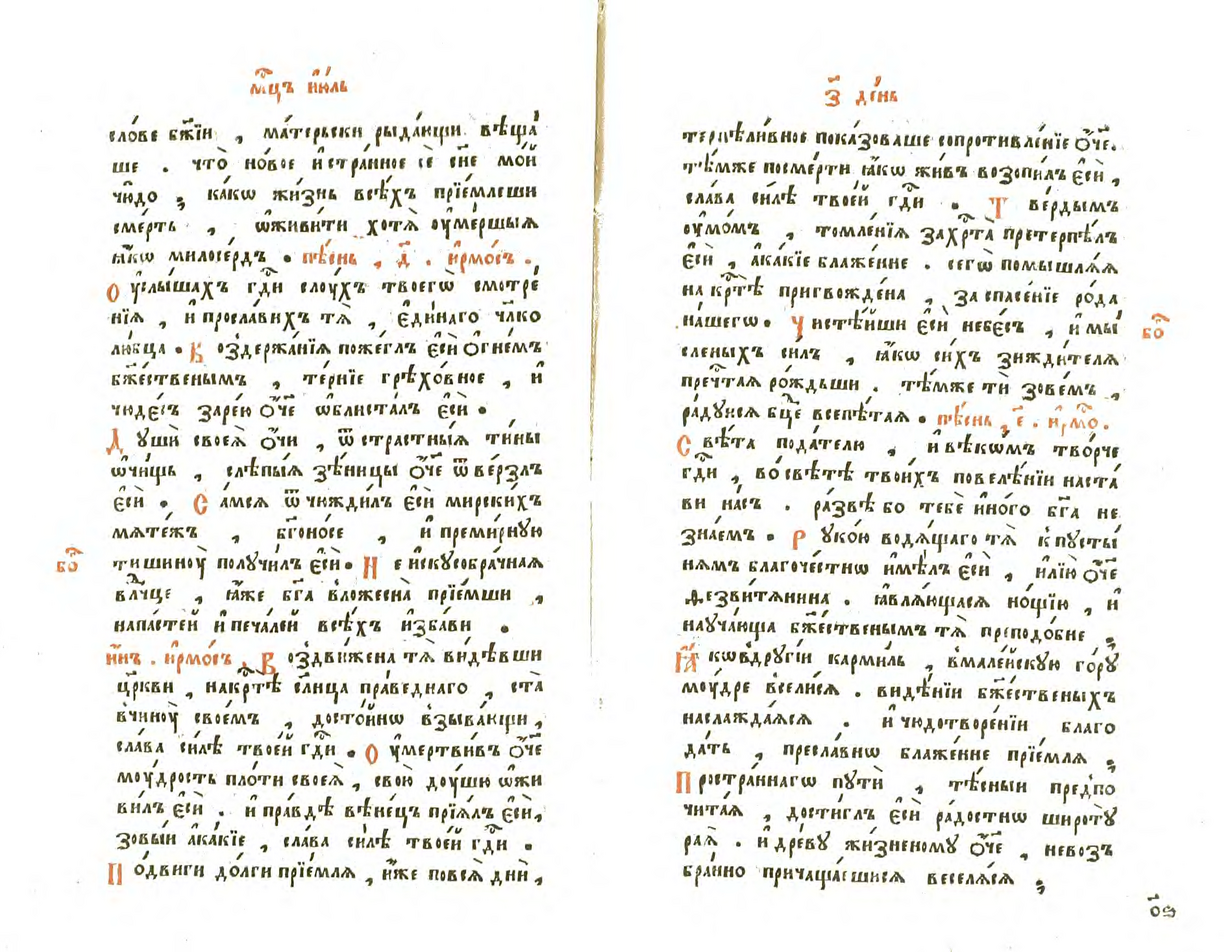 мⷭ҇цъ і҆ю́ль
сло́ве бж҃їи , ма́терьски рыда́ющи вѣща́
ше . что̀ но́вое и҆ стра́нное сѐ сн҃е мо́й
чю́до ; ка́кѡ жи́знь всѣ́хъ прїе́млеши
сме́рть , ѡ҆живи́ти хотѧ̀ оу҆ме́ршыѧ
ꙗ҆́кѡ милосе́рдъ . пѣ́снь , д҃ . і҆рмо́съ .
Оу҆слы́шахъ гдⷭ҇и слоу́хъ твоегѡ̀ смотре́
нїѧ , и҆ просла́вихъ тѧ̀ , є҆ди́наго чл҃ко
лю́бца . Воздержа́нїѧ пожеглъ є҆сѝ ѻ҆гне́мъ
бж҃е́ственымъ , те́рнїе грѣхо́вное , и҆
чюде́съ заре́ю ѻ҆́ч҃е ѡ҆блиста́лъ є҆сѝ .
Дꙋшѝ своеѧ̀ ѻ҆́чи , ѿ стра́стныѧ ти́ны
ѡ҆чи́щь , слѣпы́ѧ зѣ́ницы ѻ҆́ч҃е ѿве́рзлъ
є҆сѝ . Са́мсѧ ѿчюжди́лъ є҆сѝ мирски́хъ
мѧте́жъ , бг҃оно́се , и҆ преми́рнꙋю
тишиноу̀ получи́лъ є҆сѝ . Неи҆скусобра́чнаѧ
бо҆
влⷣчце , ꙗ҆́же бг҃а вложесна̀ прїе́мши ,
напа́стей и҆ печа́лей всѣ́хъ и҆зба́ви .
и҆́нъ . і҆рмо́съ , Воздви́жена тѧ̀ ви́дѣвши
цр҃кви , накрⷭ҇тѣ̀ сл҃нца пра́веднаго , ста̀
вчиноу̀ свое́мъ , досто́йнѡ взыва́ющи ,
сла́ва си́лѣ твое́й гдⷭ҇и . Оу҆мертви́въ ѻ҆́ч҃е
моу́дрость пло́ти своеѧ̀ , свою̀ доу́шю ѡ҆жи
ви́лъ є҆сѝ . и҆ пра́вдѣ вѣне́цъ прїѧ́лъ є҆сѝ,
зовы́й а҆ка́кїе , сла́ва си́лѣ твое́й гдⷭ҇и .
По́двиги до́лги прїе́млѧ , и҆́же повсѧ̀ дни̑ ,
з҃ де́нь
терпѣли́вное пока́зоваше сопротивле́нїе ѻ҆́ч҃е.
тѣ́мже посме́рти ꙗ҆́кѡ жи́въ возопи́лъ є҆сѝ ,
сла́ва си́лѣ твое́й гдⷭ҇и . Тве́рдымъ
оу҆мо́мъ , томле́нїѧ захрⷭ҇та̀ претерпѣ́лъ
є҆сѝ , а҆ка́кїе блаже́нне . сегѡ̀ помышлѧ́ѧ
на крⷭ҇тѣ̀ пригвожде́на , за спасе́нїе ро́да
на́шегѡ . Чи́стѣйши є҆сѝ небе́съ , и҆ мы́
бо҆
сленыхъ си́лъ , ꙗ҆́кѡ си́хъ зижди́телѧ
пречⷭ҇таѧ ро́ждьши . тѣ́мже тѝ зове́мъ ,
ра́дуисѧ бц҃е всепѣ́таѧ . пѣ́снь , є҃ . і҆рмо́ .
Свѣ́та пода́телю , и҆ вѣкѡ́мъ тво́рче
гдⷭ҇и , восвѣ́тѣ твои́хъ повелѣ́нїи наста́
ви на́съ . ра́звѣ бо тебѐ и҆но́го бг҃а не
зна́емъ . Рꙋко́ю водѧ́щаго тѧ̀ кпусты́
нѧмъ благоче́стнѡ и҆мѣ́лъ є҆сѝ , и҆лїю̀ ѻ҆́ч҃е
дезвитѧ́нина . ꙗ҆влѧ́ющасѧ но́щїю , и҆
науча́юща бж҃е́ственымъ тѧ̀ преподо́бне ;
Ꙗ҆́кѡ вдругі́и карми́ль , вмале́йскую го́рꙋ
моу́дре всели́сѧ . видѣ́нїи бж҃е́ственыхъ
наслажда́ѧсѧ . и҆ чюдотворе́нїи благо
да́ть , пресла́внѡ блаже́нне прїе́млѧ ;
Простра́ннагѡ пути̑ , тѣ́сныи предпо
чита́ѧ , дости́глъ є҆сѝ ра́достнѡ широтꙋ̀
раѧ̀ . и҆ дре́ву жи́зненому ѻ҆́ч҃е , невоз
бра́нно причаща́ешисѧ веселѧ́сѧ ;